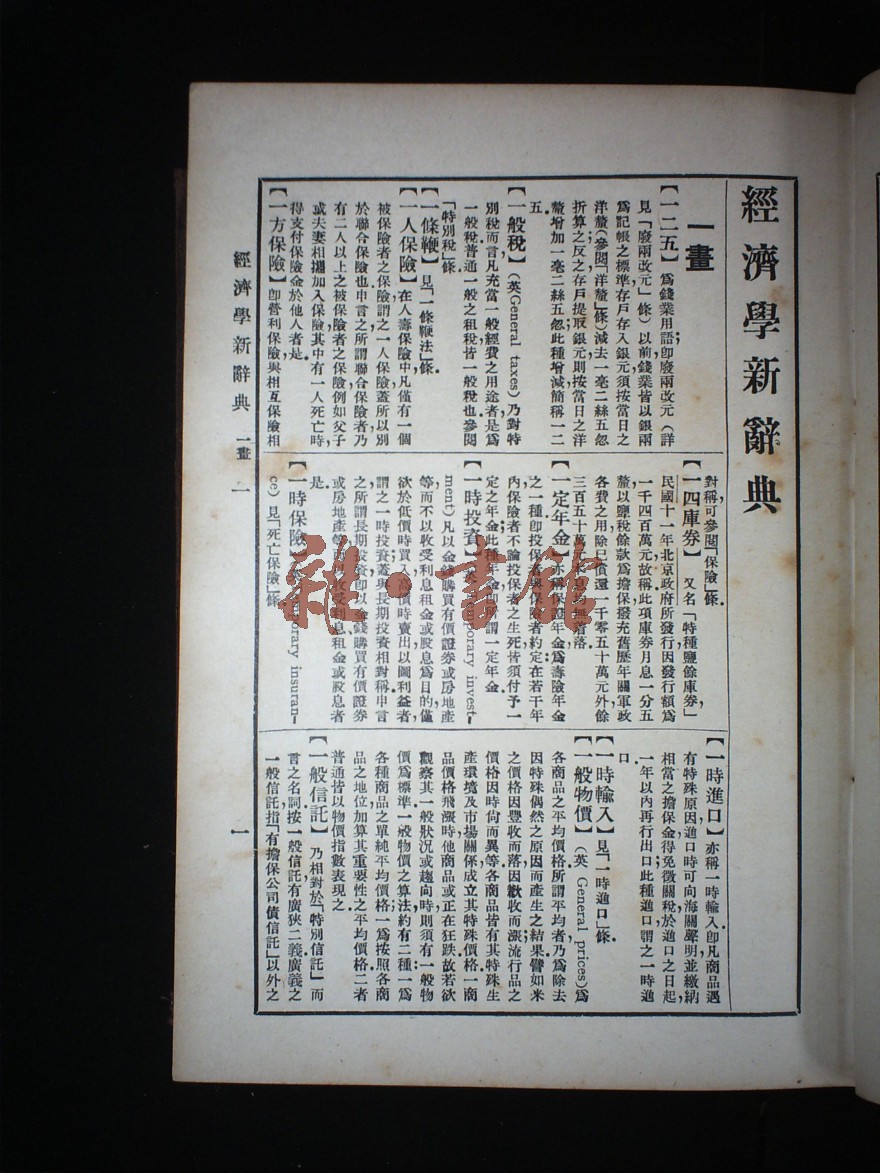 經濟學新辭典
一畫
【一二五】 爲錢業用語，卽廢兩改元（詳
見「廢兩改元」條）以前錢業皆以銀兩
爲記帳之標準，存戶存入銀元，須按當日之
洋釐（參閱「洋釐」條）減去一毫二絲五忽
折算之；反之，存戶提取銀元，則按當日之洋
釐增加一毫二絲五忽，此種增減，簡稱一二
五。
【一般稅】 （英General taxes）乃對特
別稅而言，凡充當一般經費之用途者是爲
一般稅。普通一般之租稅，皆一般稅也。參閱
「特別稅」條。
【一條鞭】 見「一條鞭法」條。
【一人保險】 在人壽保險中，凡僅有一個
被保險者之保險，謂之一人保險，蓋所以別
於聯合保險也。申言之，所謂聯合保險者，乃
有二人以上之被保險者之保險，例如父子
或夫妻相攜加入保險，其中有一人死亡時，
得支付保險金於他人者是。
【一方保險】 卽營利保險，與相互保險相
對稱，可參閱「保險」條。
【一四庫券】 又名「特種鹽餘庫券」，
民國十一年北京政府所發行，因發行額爲
一千四百萬元，故稱。此項庫券月息一分五
釐，以鹽稅餘款爲擔保，撥充舊歷年關軍政
各費之用，除已償還一千零五十萬元外，餘
三百五十萬元本息均無着落。
【一定年金】 亦稱保證年金，爲壽險年金
之一種，卽投保者與保險者約定在若干年
內，保險者不論投保者之生死，皆須付予一
定之年金，此種年金，卽所謂一定年金。
【一時投資】 （英Temporary invest-
ment）凡以金錢購買有價證券或房地產
等，而不以收受利息租金或股息爲目的，僅
欲於低價時買入，高價時賣出，以圖利益者，
謂之一時投資；蓋與長期投資相對稱。申言
之，所謂長期投資，卽以金錢購買有價證券
或房地產等，而以收受利息租金或股息者
是。
【一時保險】 （英Temporary insuran-
ce）見「死亡保險」條。
【一時進口】 亦稱一時輸入，卽凡商品遇
有特殊原因進口時，可向海關聲明，並繳納
相當之擔保金，得免徵關稅，於進口之日起
一年以內再行出口，此種進口，謂之一時進
口。
【一時輸入】 見「一時進口」條。
【一般物價】 （英 General prices）爲
各商品之平均價格。所謂平均者，乃爲除去
因特殊偶然之原因而產生之結果，譬如米
之價格，因豐收而落，因歉收而漲，流行品之
價格因時尙而異等。各商品皆有其特殊生
產環境及市場關係，成立其特殊價格，一商
品價格飛漲時，他商品或正在狂跌，故若欲
觀察其一般狀況或趨向時，則須有一般物
價爲標準。一般物價之算法，約有二種：一爲
各種商品之單純平均價格；一爲按照各商
品之地位加算其重要性之平均價格。二者
普通皆以物價指數表現之。
【一般信託】 乃相對於「特別信託」而
言之名詞。按一般信託有廣狹二義，廣義之
一般信託，指「有擔保公司債信託」以外之
經濟學新辭典 一畫 一
一
雜·書館